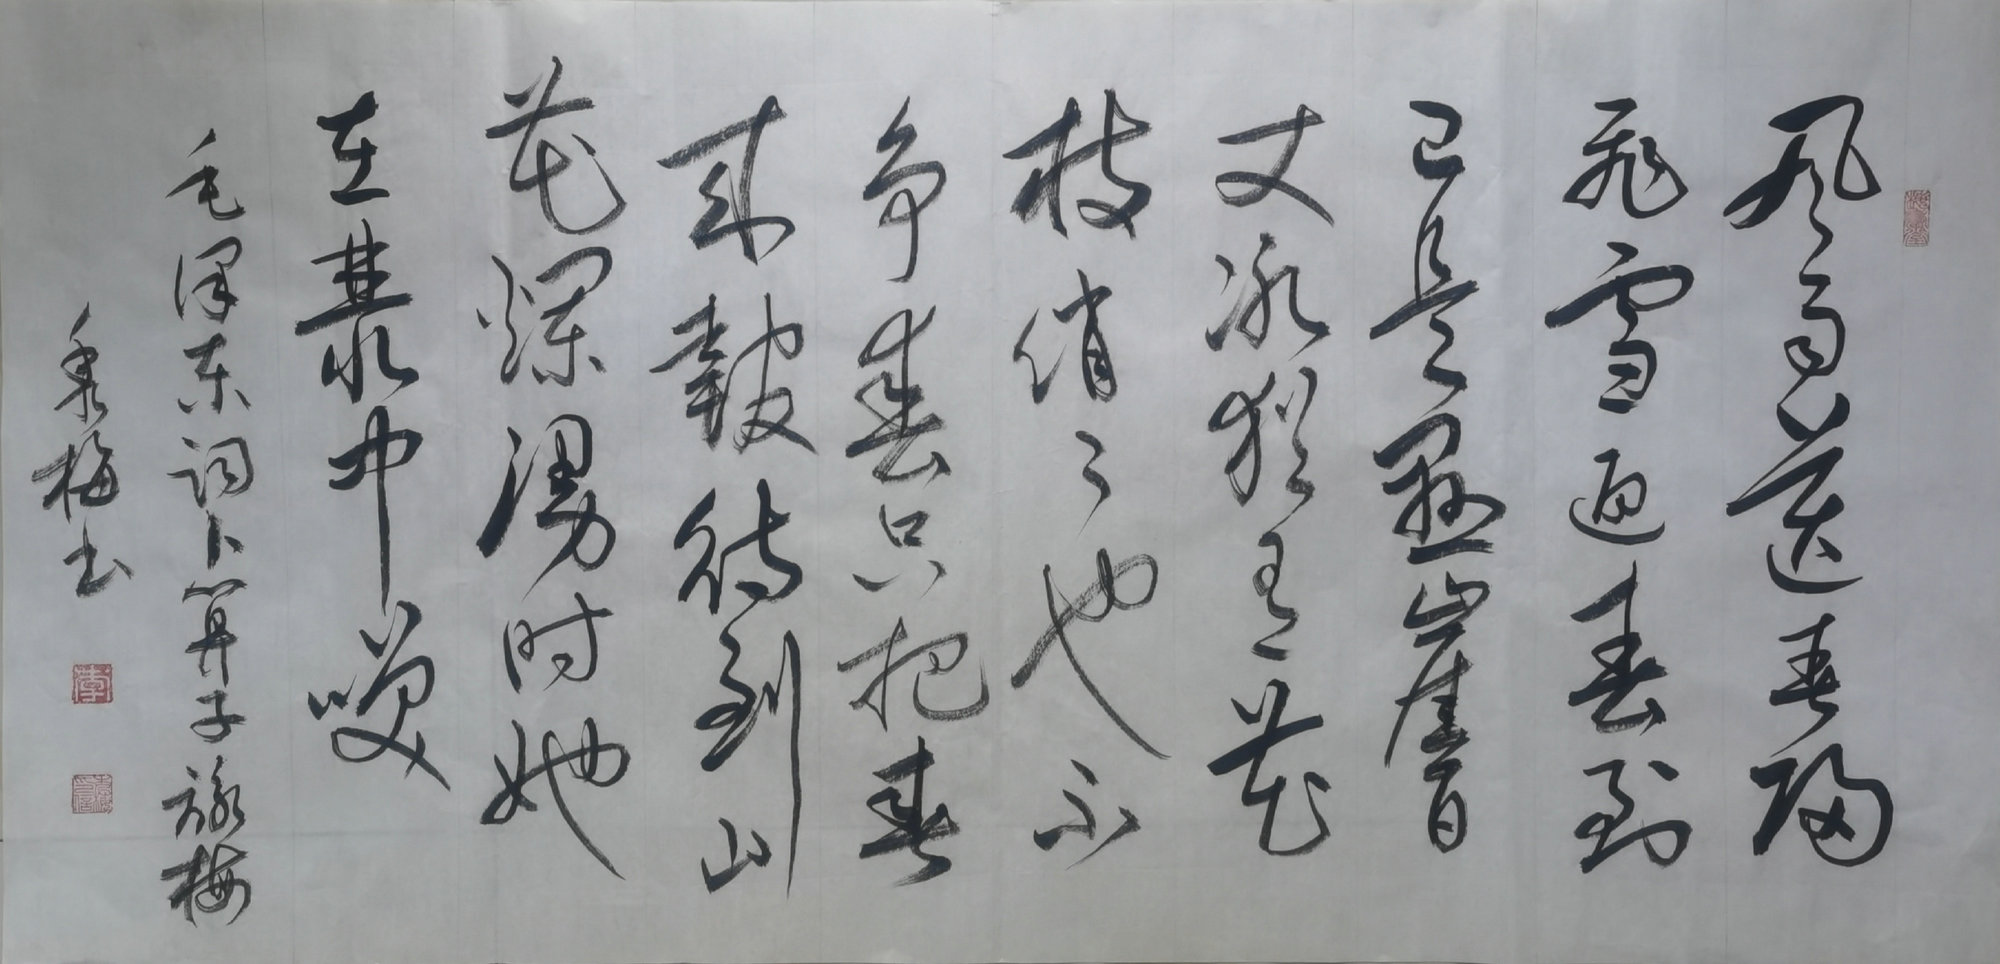 风雨送春归
飞雪迎春到
已是悬崖百
丈冰犹有花
枝俏々也不
争春只把春
来報待到山
花烂漫时她
在丛中笑
毛泽东词卜算子咏梅
秀梅书